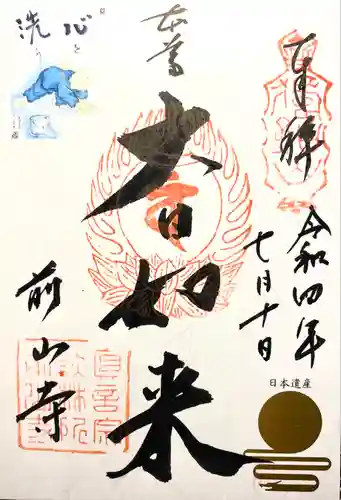 奉拝
令和四年
七月十日
本尊
大日如来
前山寺
心を
洗う
日本遺産
真言宗